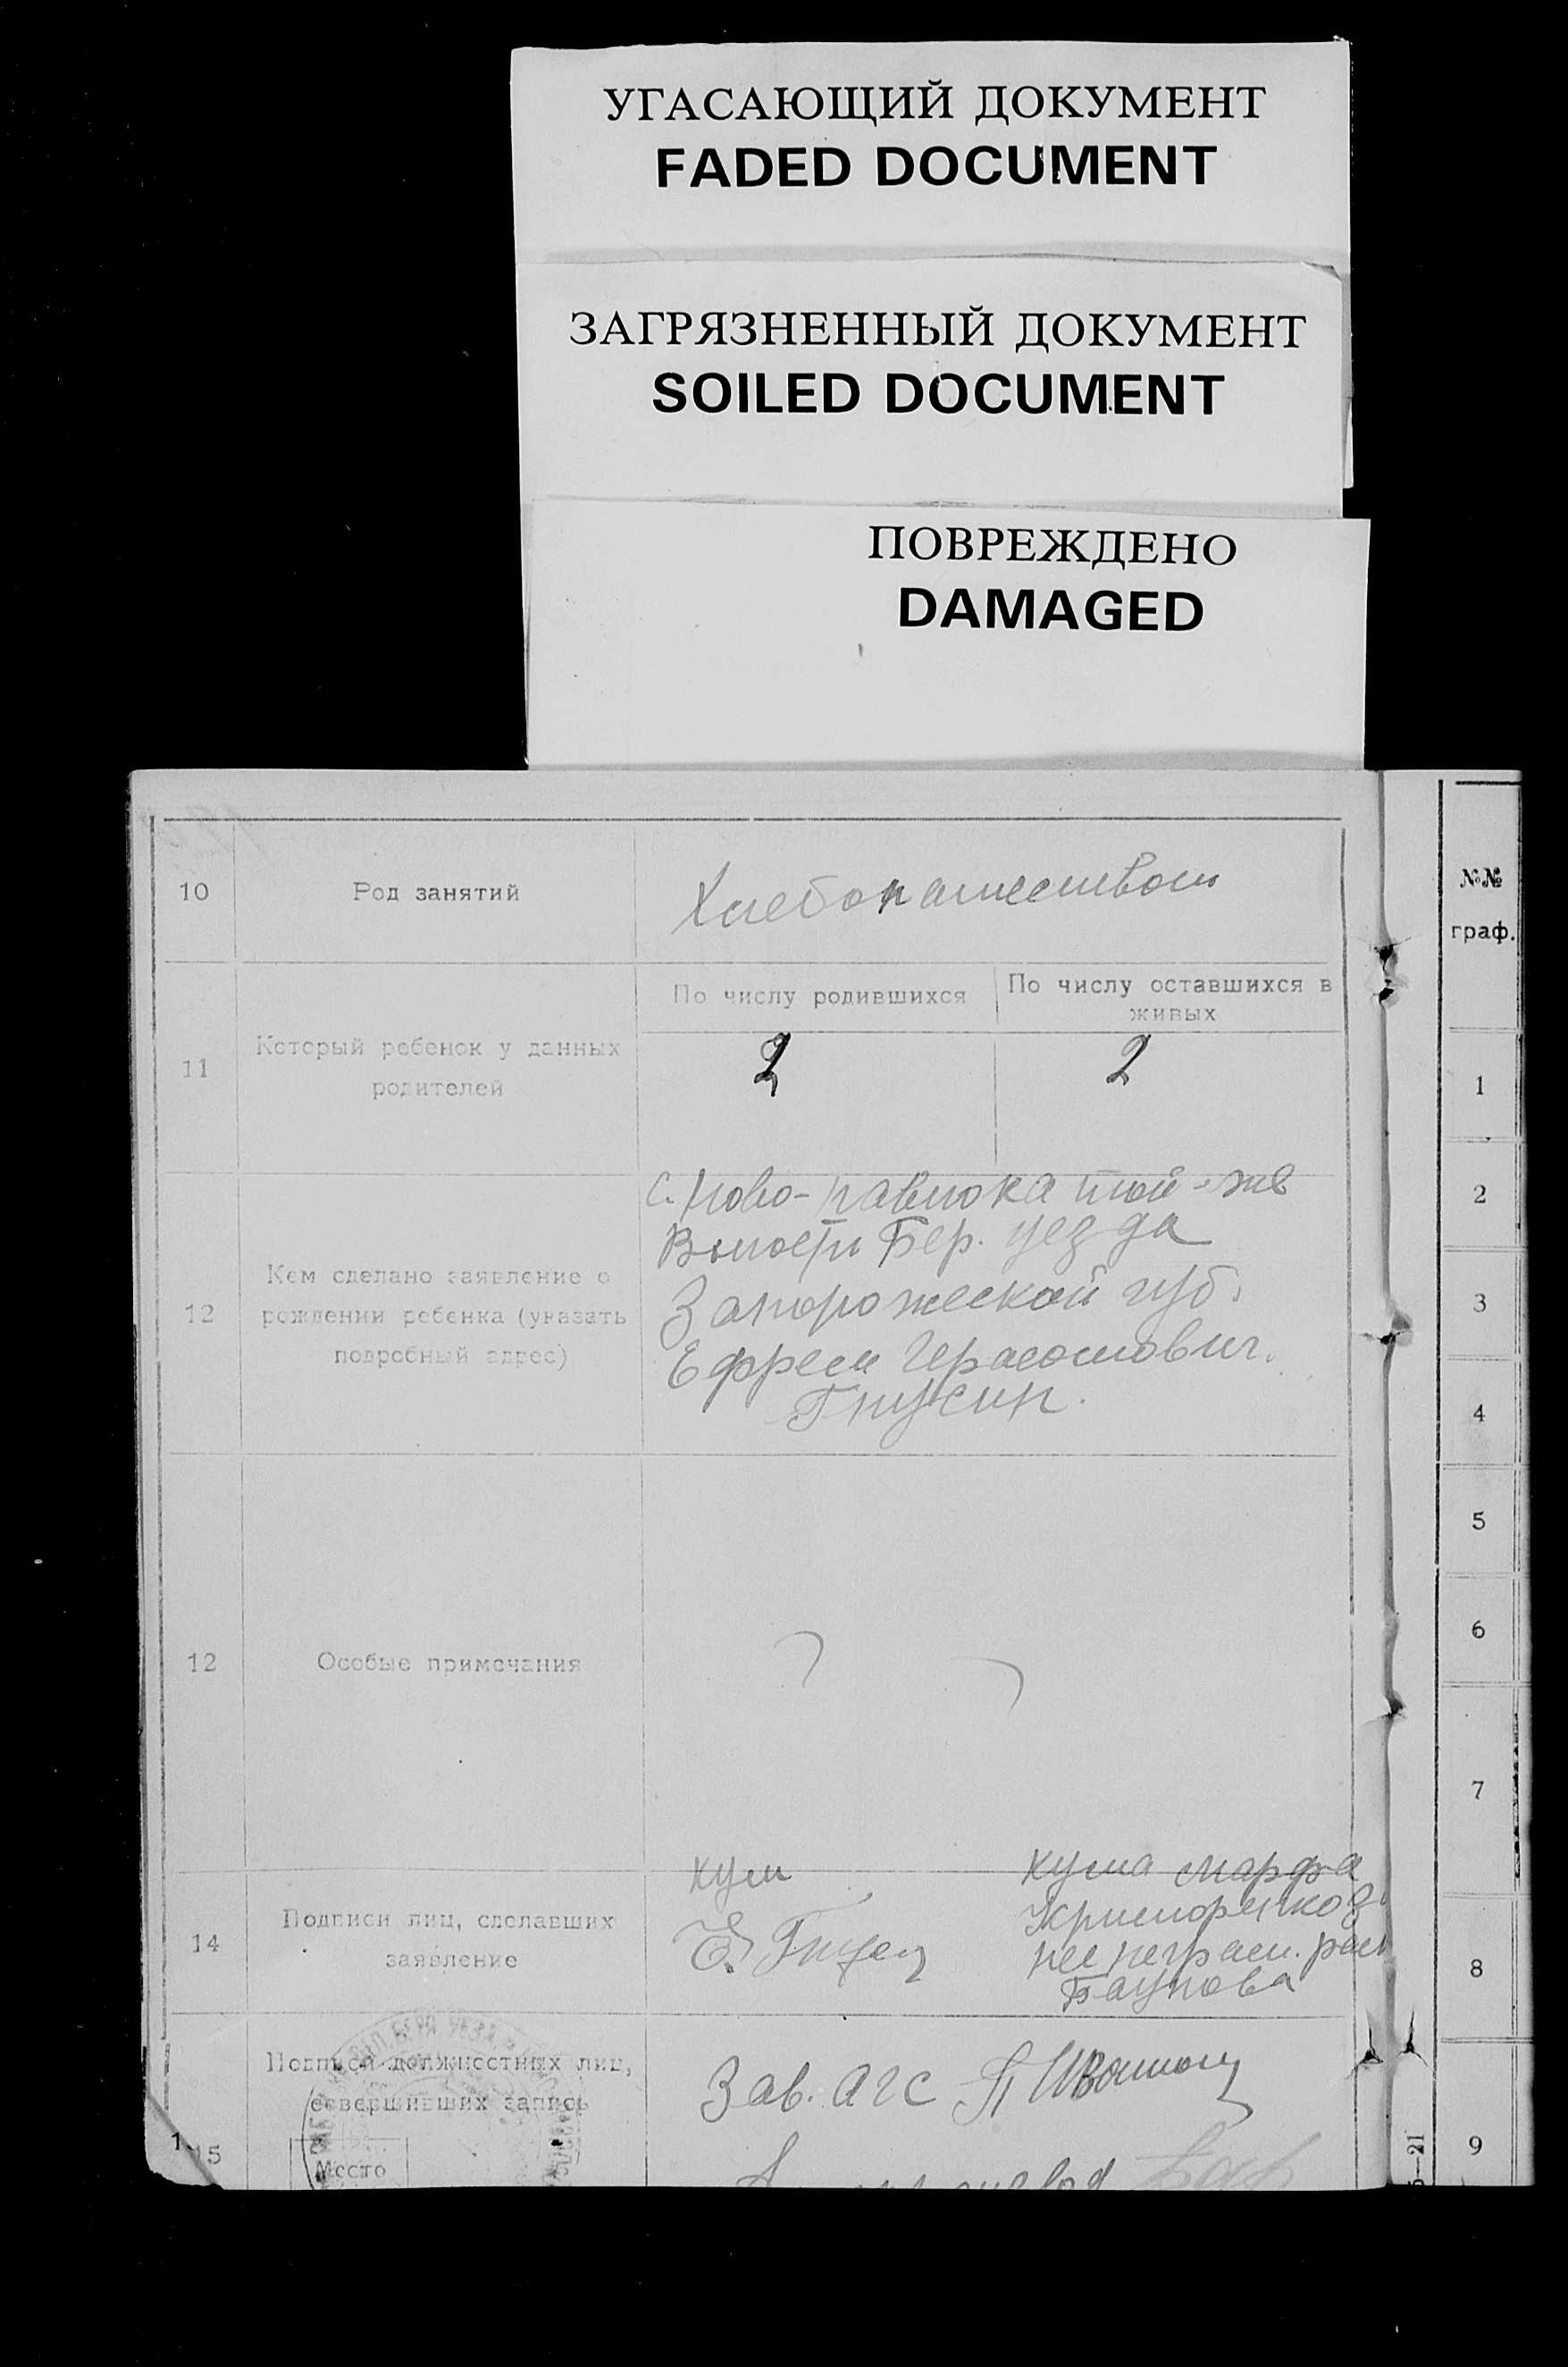 УГАСАЮЩИЙ ДОКУМЕНТ
FADED DOCUMENT
ЗАГРЯЗНЕННЫЙ ДОКУМЕНТ
SOILED DOCUMENT
ПОВРЕЖДЕНО
DAMAGED
10
Род занятий
Хлебопашеством
11
Который ребенок у данных
родителей
По числу родившихся
По числу оставшихся в
живых
2
2
12
Кем сделано заявление о
рождении ребенка (указать
подробный адрес)
с. Ново-Павловка той-же
Волости Бер. уезда
Запорожеской губ.
Ефрем Герасомович.
12
Особые примечания
14
Подписи лиц, сделавших
заявление
кум
кума Марфа
неграм. рас
Баунова
15
Подписи должностных лиц,
совершивших запись
Место
Зав. АГС
№№
граф.
1
2
3
4
5
6
7
8
9